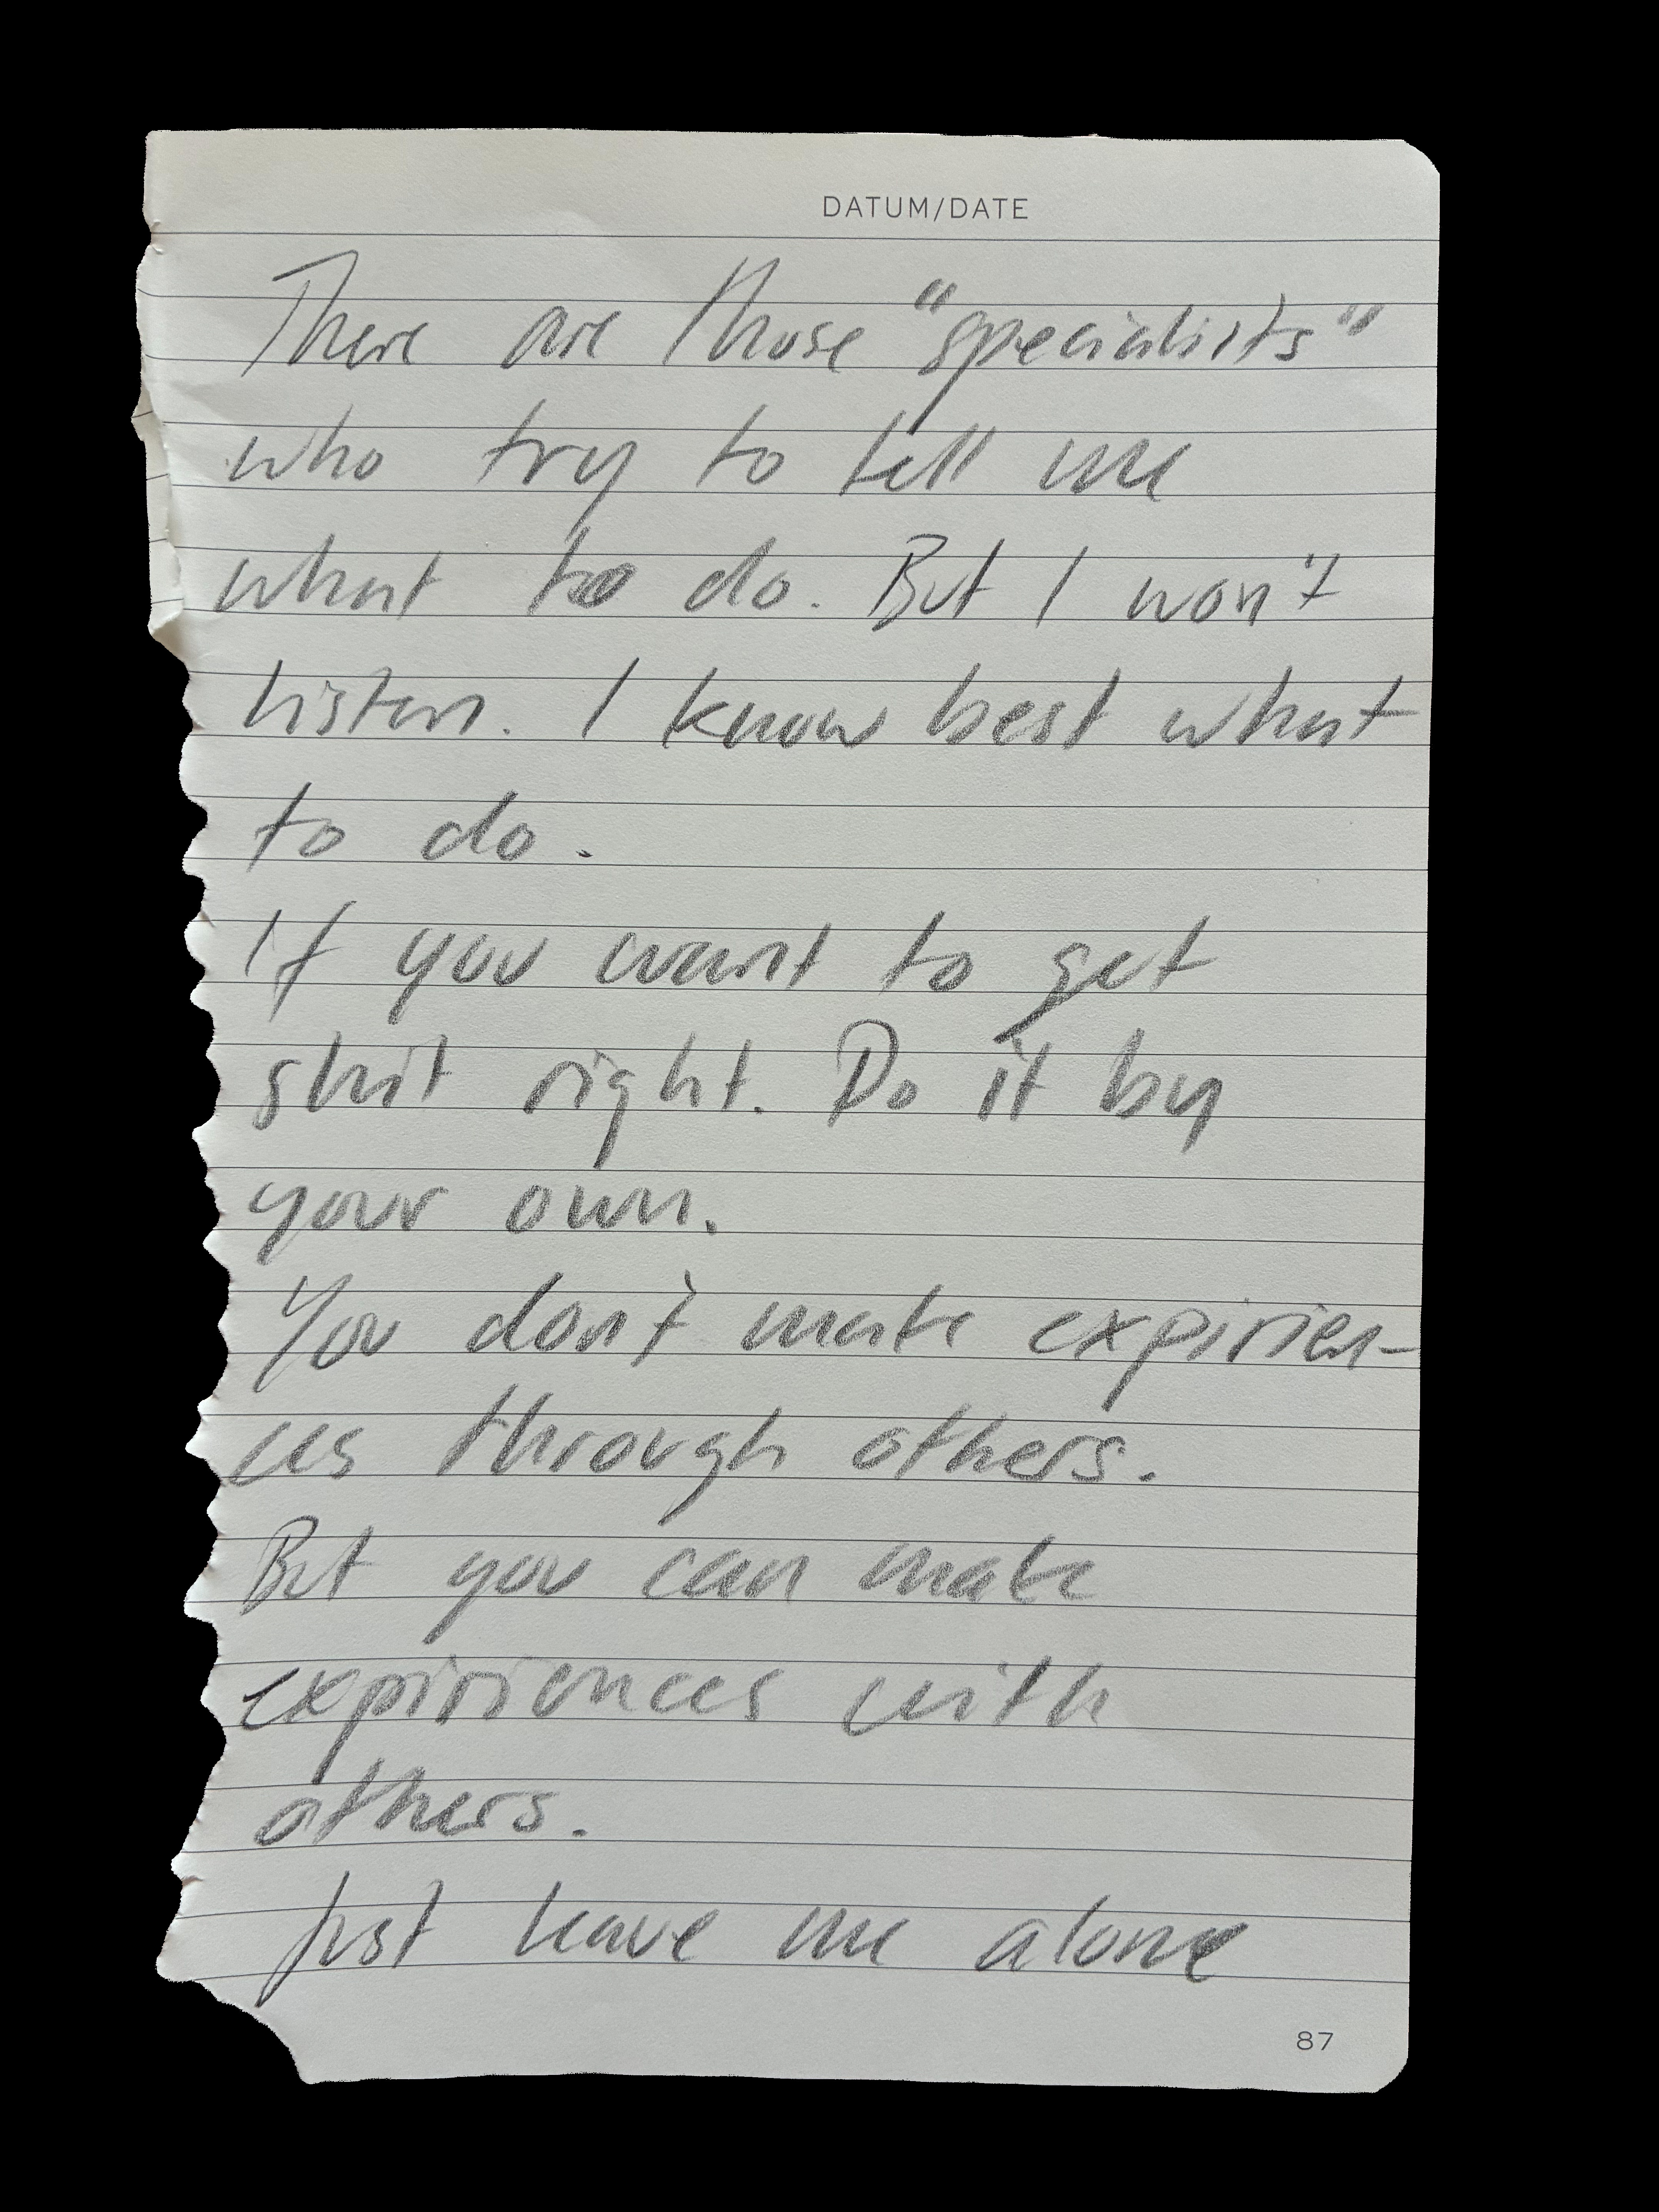 DATUM/DATE
There are those "specialists"
who try to tell me
what to do. But I won't
listen. I know best what
to do.
If you want to get
shit right. Do it by
your own.
You don't make expirien-
ces through others.
But you can make
expiriences with
others.
Just leave me alone
87